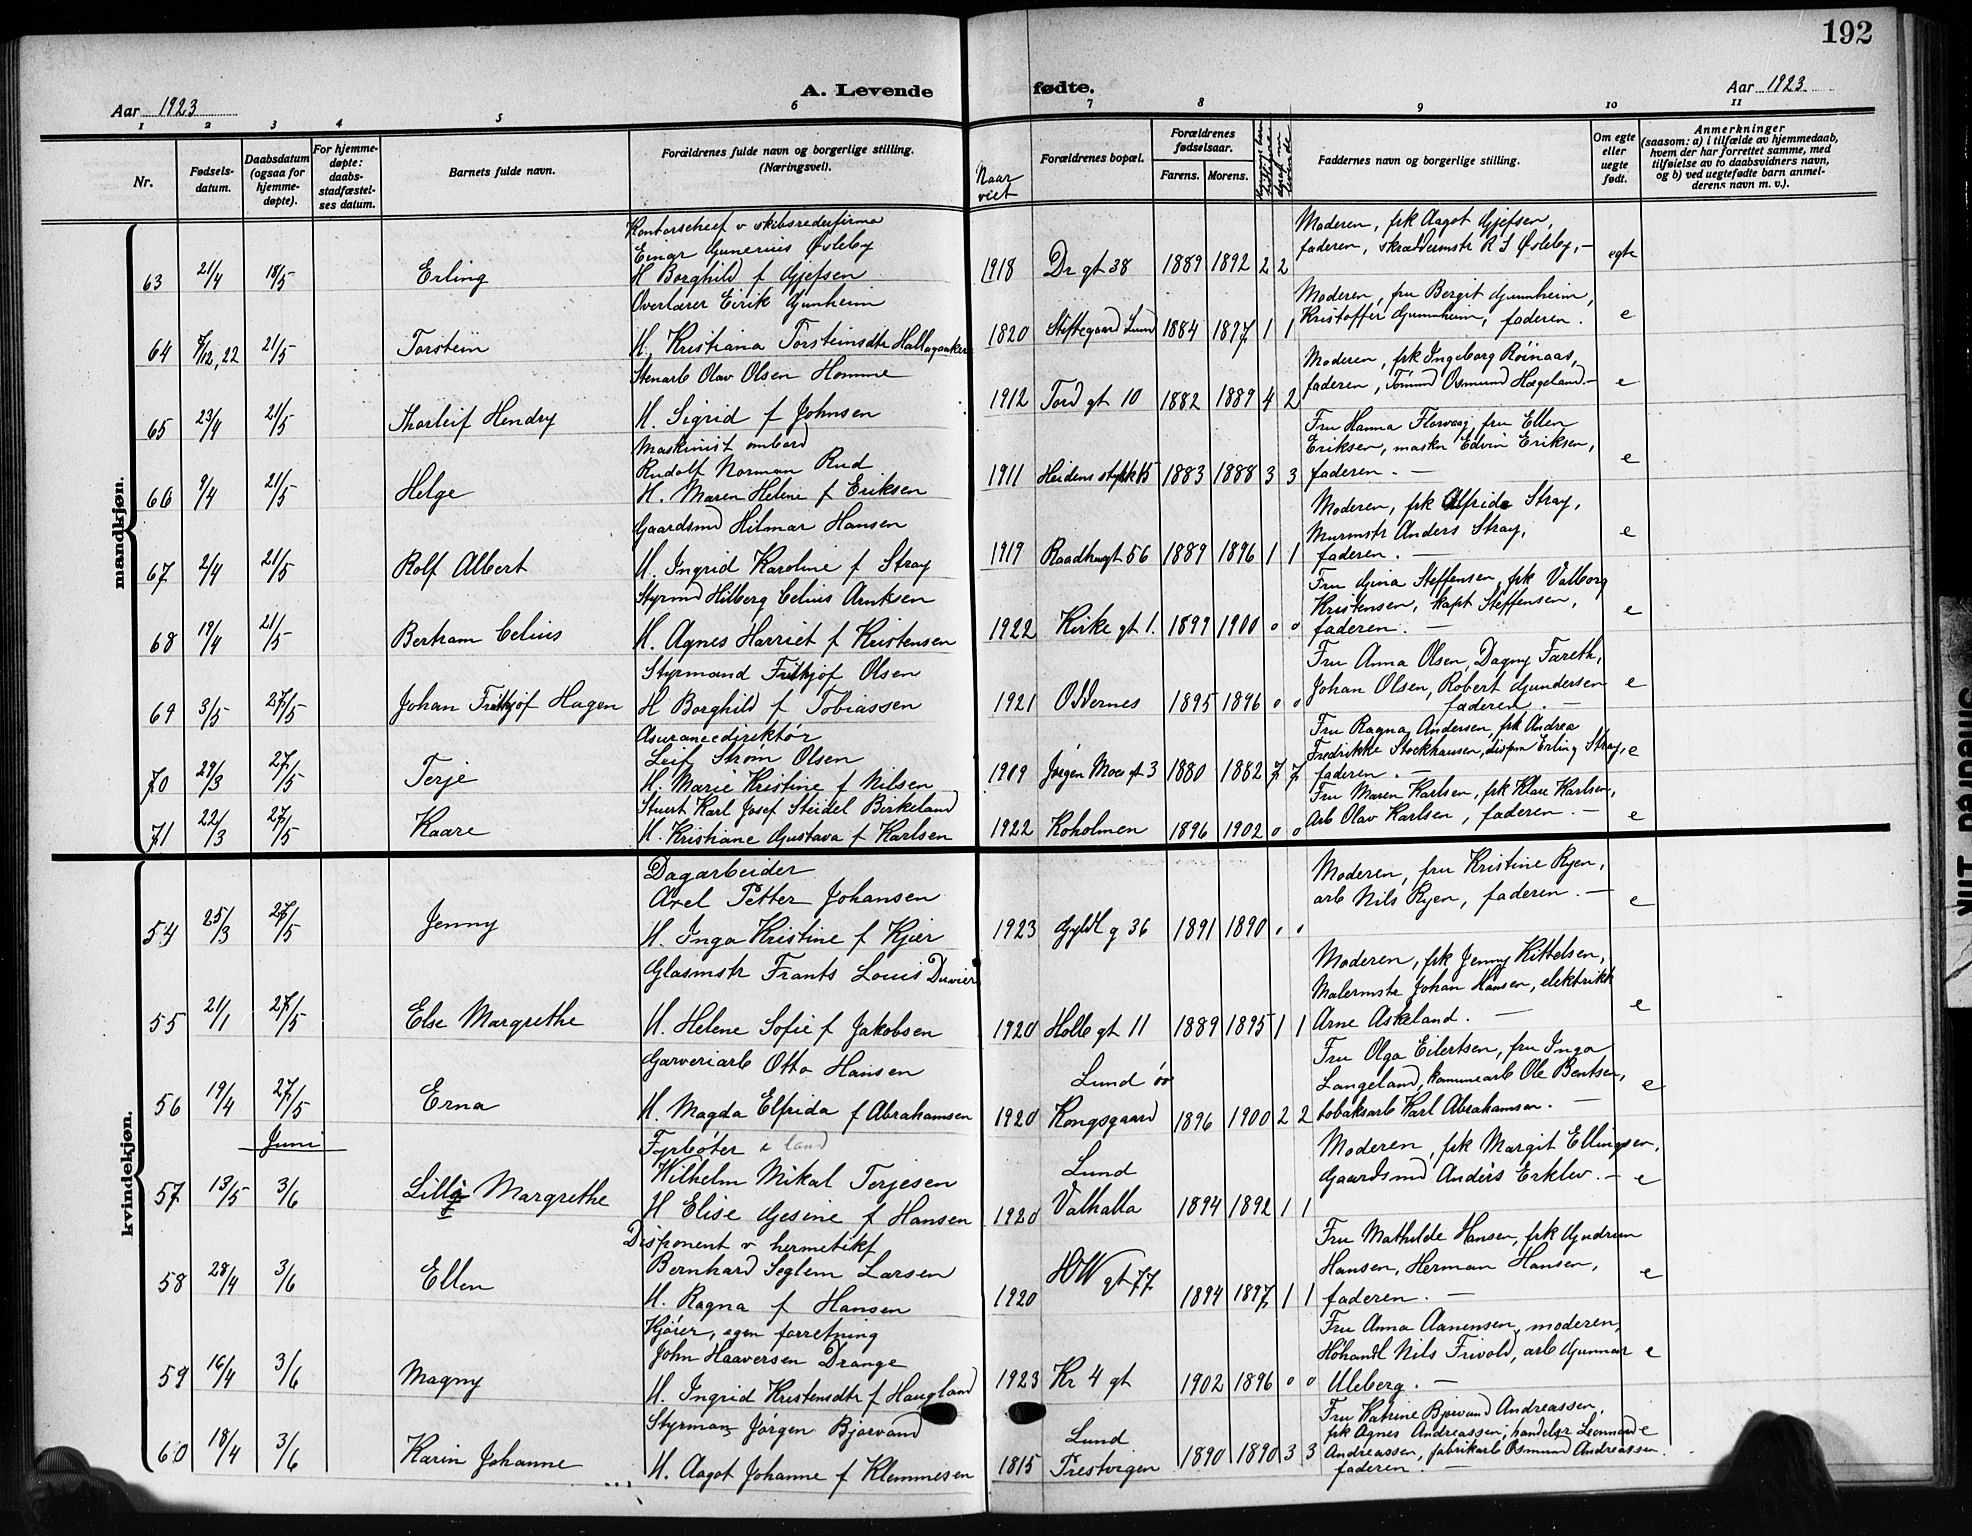 192
Aar 1923
A. Levende
fødte.
Aar 1923
1 2 3 4 5 6 7 8 9 10 11
Nr.
Fødsels-
datum.
Daabsdatum
(ogsaa for
hjemme-
døpte).
For hjemme-
døpte:
daabs-
stadfæstel-
ses datum.
Barnets fulde navn.
Forældrenes fulde navn og borgerlige stilling.
(Næringsvei).
Naar
viet
Forældrenes bopæl.
Forældrenes
fødselsaar.
Farens. Morens.
Faddernes navn og borgerlige stilling.
Om egte
eller
uegte
født.
Anmerkninger
(saasom: a) i tilfælde av hjemmedaab,
hvem der har forrettet samme, med
tilføielse av to daabsvidners navn,
og b) ved uegtefødte barn anmel-
derens navn m. v.).
mandkjøn.
63 21/4 18/5 Erling
Kontorschef v skibsrederfirma
Einar Gunerius Øsleby
H Borghild f Gjefsen
1918 Dr gt 38 1889 1892 2 2
Moderen, frk Aagot Gjefsen,
faderen, skræddermstr R S Øsleby, –
egte
64 7/12, 22 21/5 Torstein
Overlærer Eirik Gunheim
H. Kristiana Torsteinsdtr Hallagaaker
1820 Stiftegaard Lund 1884 1897 1 1
Moderen, fru Bergit Gunnheim,
Kristoffer Gunnheim, faderen.
e
65 23/4 21/5 Thorleif Hendry
Stenarb Olav Olsen Homme
H. Sigrid f Johnsen
1912 Tord gt 10 1882 1889 4 2
Moderen, frk Ingeborg Røinaas,
faderen, Tomund Osmund Hægeland. –
e
66 9/4 21/5 Helge
Maskinist ombord
Rudolf Norman Rud
H. Maren Helene f Eriksen
1911 Heidens stykk 15 1883 1888 3 3
Fru Hanna Florvaag, fru Ellen
Eriksen, maskn Edvin Eriksen,
faderen. —
e
67 2/4 21/5 Rolf Albert
Gaardsmd Hilmar Hansen
H. Ingrid Karoline f Stray
1919 Raadhusgt 56 1889 1896 1 1
Moderen, frk Alfride Stray,
Murmstr Anders Stray,
faderen. —
e
68 19/4 21/5 Bertram Celius
Styrmd Hilberg Celius Arntsen
H. Agnes Harriet f Kristensen
1922 Kirke gt 1. 1899 1900 0 0
Fru Gina Steffensen, frk Valborg
Kristensen, kapt Steffensen,
faderen. —
e
69 3/5 27/5 Johan Frithjof Hagen
Styrmand Frithjof Olsen
H Borghild f Tobiassen
1921 Oddernes 1895 1896 0 0
Fru Anna Olsen, Dagny Fareth,
Johan Olsen, Robert Gundersen
faderen. —
e
70 29/3 27/5 Terje
Asurancedirektør
Leif Strøm Olsen
H. Marie Kristine f Nilsen
1909 Jørgen Moes gt 3 1880 1882 7 7
Fru Ragna Andersen, frk Andrea
Fredrikke Stockhausen, dispon Erling Stray,
faderen. —
e
71 22/3 27/5 Kaare
Stuert Karl Josef Steidel Birkeland
H. Kristiane Gustava f Karlsen
1922 Koholmen 1896 1902 0 0
Fru Maren Karlsen, frk Klare Karlsen,
Arb Olav Karlsen, faderen. —
e
kvindekjøn.
54 25/3 27/5 Jenny
Dagarbeider
Axel Petter Johansen
H. Inga Kristine f Kjær
1923 Gyldl g 36 1891 1890 0 0
Moderen, fru Kristine Ryen,
arb Nils Ryen, faderen. —
e
55 21/1 27/5 Else Margrethe
Glasmstr Frants Louis Duvier
H. Helene Sofie f Jakobsen
1920 Holb gt 11 1889 1895 1 1
Moderen, frk Jenny Kittelsen,
Malermstr Johan Hansen, elektrikk
Arne Askeland. —
e
56 19/4 27/5 Erna
Garveriarb Otto Hansen
H. Magda Elfrida f Abrahamsen
Lund øv
1920 Kongsgaard 1896 1900 2 2
Fru Olga Eilertsen, fru Inga
Langeland, kommunearb Ole Bentsen,
tobaksarb Karl Abrahamsen. —
e
Juni
57 13/5 3/6 Lilli Margrethe
Fyrbøter i land
Wilhelm Mikal Terjesen
H Elise Gjesine f Hansen
Lund
1920 Valhalla 1894 1892 1 1
Moderen, frk Margit Ellingsen,
Gaardsmd Anders Erklev. —
e
58 28/4 3/6 Ellen
Disponent v hermetikf
Bernhard Seglem Larsen
H. Ragna f Hansen
1920 HW gt 77. 1894 1897 1 1
Fru Mathilde Hansen, frk Gudrun
Hansen, Herman Hansen,
faderen. —
e
59 16/4 3/6 Magny
Kjører, egen forretning
John Haaversen Drange
H. Ingrid Kristensdtr f Haugland
1923 Kr 4 gt 1902 1896 0 0
Fru Anna Aanensen, moderen,
Høhandl Nils Frivold, arb Gunnar
Uleberg. —
e
60 18/4 3/6 Karin Johanne
Styrman Jørgen Bjorvand
H. Aagot Johanne f Klemmesen
Lund
1815 Prestvigen 1890 1890 3 3
Fru Katrine Bjorvand Andreassen,
frk Agnes Andreassen, handelsr Leonnard
Andreassen, fabrikarb Osmund Andreassen.
faderen. —
e